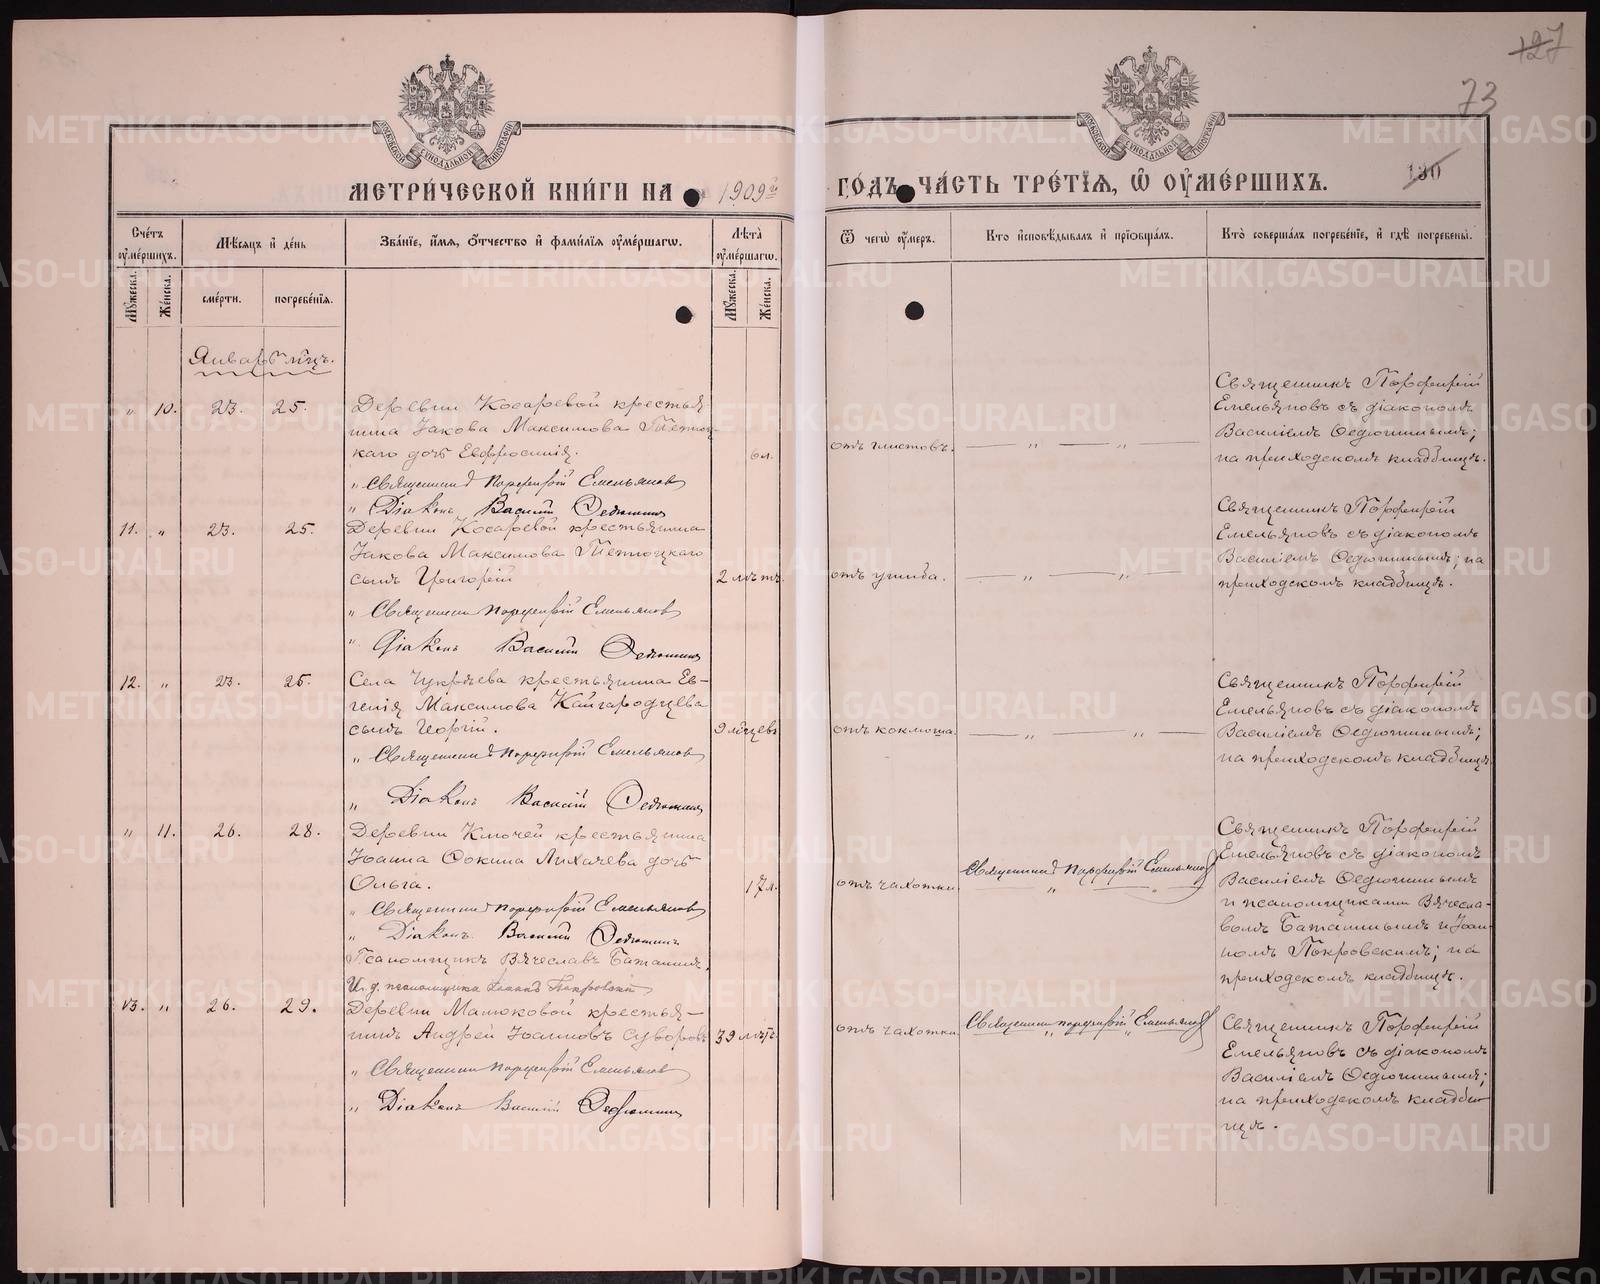 127
73
130
МОСКОВСКОЙ СѴНОДАЛЬНОЙ ТИПОГРАФІИ
МОСКОВСКОЙ СѴНОДАЛЬНОЙ ТИПОГРАФІИ
МЕТРИ́ЧЕСКОЙ КНИ́ГИ НА 1909й
ГО́ДЪ ЧА́СТЬ ТРЕ́ТІѦ, Ѿ ОУМЕ́РШИХЪ.
Сче́тъ оуме́ршихъ.
Мꙋжеска.
Же́нска.
Мѣсѧцъ и де́нь
сме́рти.
погребе́нїѧ.
Зва́нїе, и́мѧ, о́тчество и фами́лїѧ оуме́ршагѡ.
Лѣ́та оуме́ршагѡ.
Мꙋжеска.
Же́нска.
Ѿ чегѡ̀ оу́меръ.
Кто̀ исповѣ́дывалъ и прїобща́лъ.
Кто̀ соверша́лъ погребе́нїе, и гдѣ̀ погребены̀.
Январь мѣцъ.
" 10. 23. 25.
Деревни Косаревой крестья-
нина Іакова Максимова
каго дочь Евфросинія.
6 л.
" Священникъ Порфирій Емельяновъ
" Діаконъ Василій Ѳедюшинъ
отъ глистовъ.
— " — " —
Священникъ Порфирій
Емельяновъ съ діакономъ
Василіемъ Ѳедюшинымъ;
на приходскомъ кладбищѣ.
11. " 23. 25.
Деревни Косаревой крестьянина
Іакова Максимова
сынъ Григорій
2 лѣтъ.
" Священникъ Порфирій Емельяновъ
" Діаконъ Василій Ѳедюшинъ
отъ ушиба.
— " — " —
Священникъ Порфирій
Емельяновъ съ діакономъ
Василіемъ Ѳедюшинымъ; на
приходскомъ кладбищѣ.
12. " 23. 25.
Села Чукрѣева крестьянина Ев-
генія Максимова Кайгородцева
сынъ Георгій.
9 мѣсяцевъ
" Священникъ Порфирій Емельяновъ
" Діаконъ Василій Ѳедюшинъ
отъ коклюша.
— " — " —
Священникъ Порфирій
Емельяновъ съ діакономъ
Василіемъ Ѳедюшинымъ;
на приходскомъ кладбищѣ.
" 11. 26. 28.
Деревни Ключей крестьянина
Іоанна Ѳокина Лихачева дочь
Ольга.
17 л.
" Священникъ Порфирій Емельяновъ
" Діаконъ Василій Ѳедюшинъ
Псаломщикъ Вячеславъ Баталинъ.
И. д. псаломщика Іоаннъ Покровскій
отъ чахотки.
Священникъ Порфирій Емельяновъ
Священникъ Порфирій
Емельяновъ съ діакономъ
Василіемъ Ѳедюшинымъ
и псаломщиками Вячесла-
вомъ Баталинымъ и Іоан-
номъ Покровскимъ; на
приходскомъ кладбищѣ.
13. " 26. 29.
Деревни Матюковой крестья-
нинъ Андрей Іоанновъ Суворовъ
39 лѣтъ.
" Священникъ Порфирій Емельяновъ
" Діаконъ Василій Ѳедюшинъ
отъ чахотки.
Священникъ Порфирій Емельяновъ
Священникъ Порфирій
Емельяновъ съ діакономъ
Василіемъ Ѳедюшинымъ;
на приходскомъ кладби-
щѣ.
METRIKI.GASO-URAL.RU